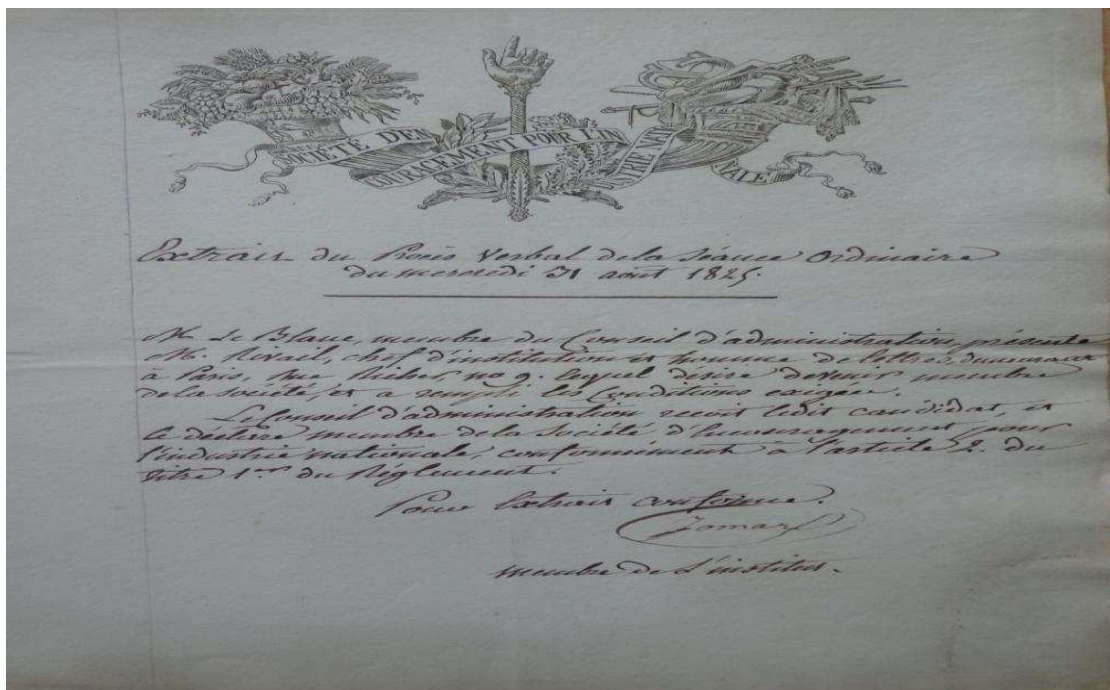 SOCIÉTÉ D'ENCOURAGEMENT POUR L'INDUSTRIE NATIONALE
Extrait du Procès Verbal de la Séance Ordinaire
du mercredi 31 août 1825.
M. Le Blanc, membre du Conseil d'administration, présente
M. Rivail, chef d'institution et homme de lettres, demeurant
à Paris, rue no 9. lequel désire devenir membre
de la société, et a rempli les Conditions exigées.
Le Conseil d'administration reçoit ledit candidat, et
le déclare membre de la Société d'Encouragement pour
l'industrie nationale, conformément à l'article 2. du
titre 1er du Réglement.
Pour Extrait conforme.
Jomard
membre de L'institut.